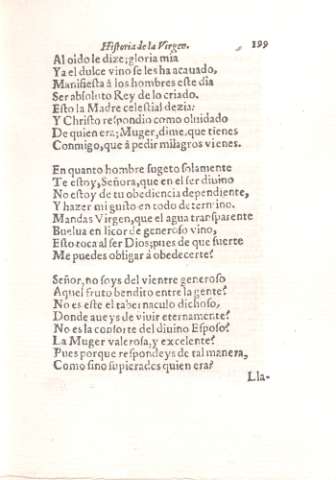 Historia de la Virgen. 199
Al oido le dize; gloria mia
Ya el dulce vino se les ha acauado,
Manifiesta â los hombres este dia
Ser absoluto Rey de lo criado.
Esto la Madre celestial dezia:
Y Christo respondio como oluidado
De quien era; Muger, dime, que tienes
Conmigo, que â pedir milagros vienes.
En quanto hombre sugeto solamente
Te estoy, Señora, que en el ser diuino
No estoy de tu obediencia dependiente,
Y hazer mi gusto en todo determino.
Mandas Virgen, que el agua transparente
Buelua en licor de generoso vino,
Esto toca al ser Dios; pues de que suerte
Me puedes obligar â obedecerte?
Señor, no soys del vientre generoso
Aquel fruto bendito entre la gente?
No es este el tabernaculo dichoso,
Donde aueys de viuir eternamente?
No es la consorte del diuino Esposo?
La Muger valerosa, y excelente?
Pues porque respondeys de tal manera,
Como sino supierades quien era?
Lla-